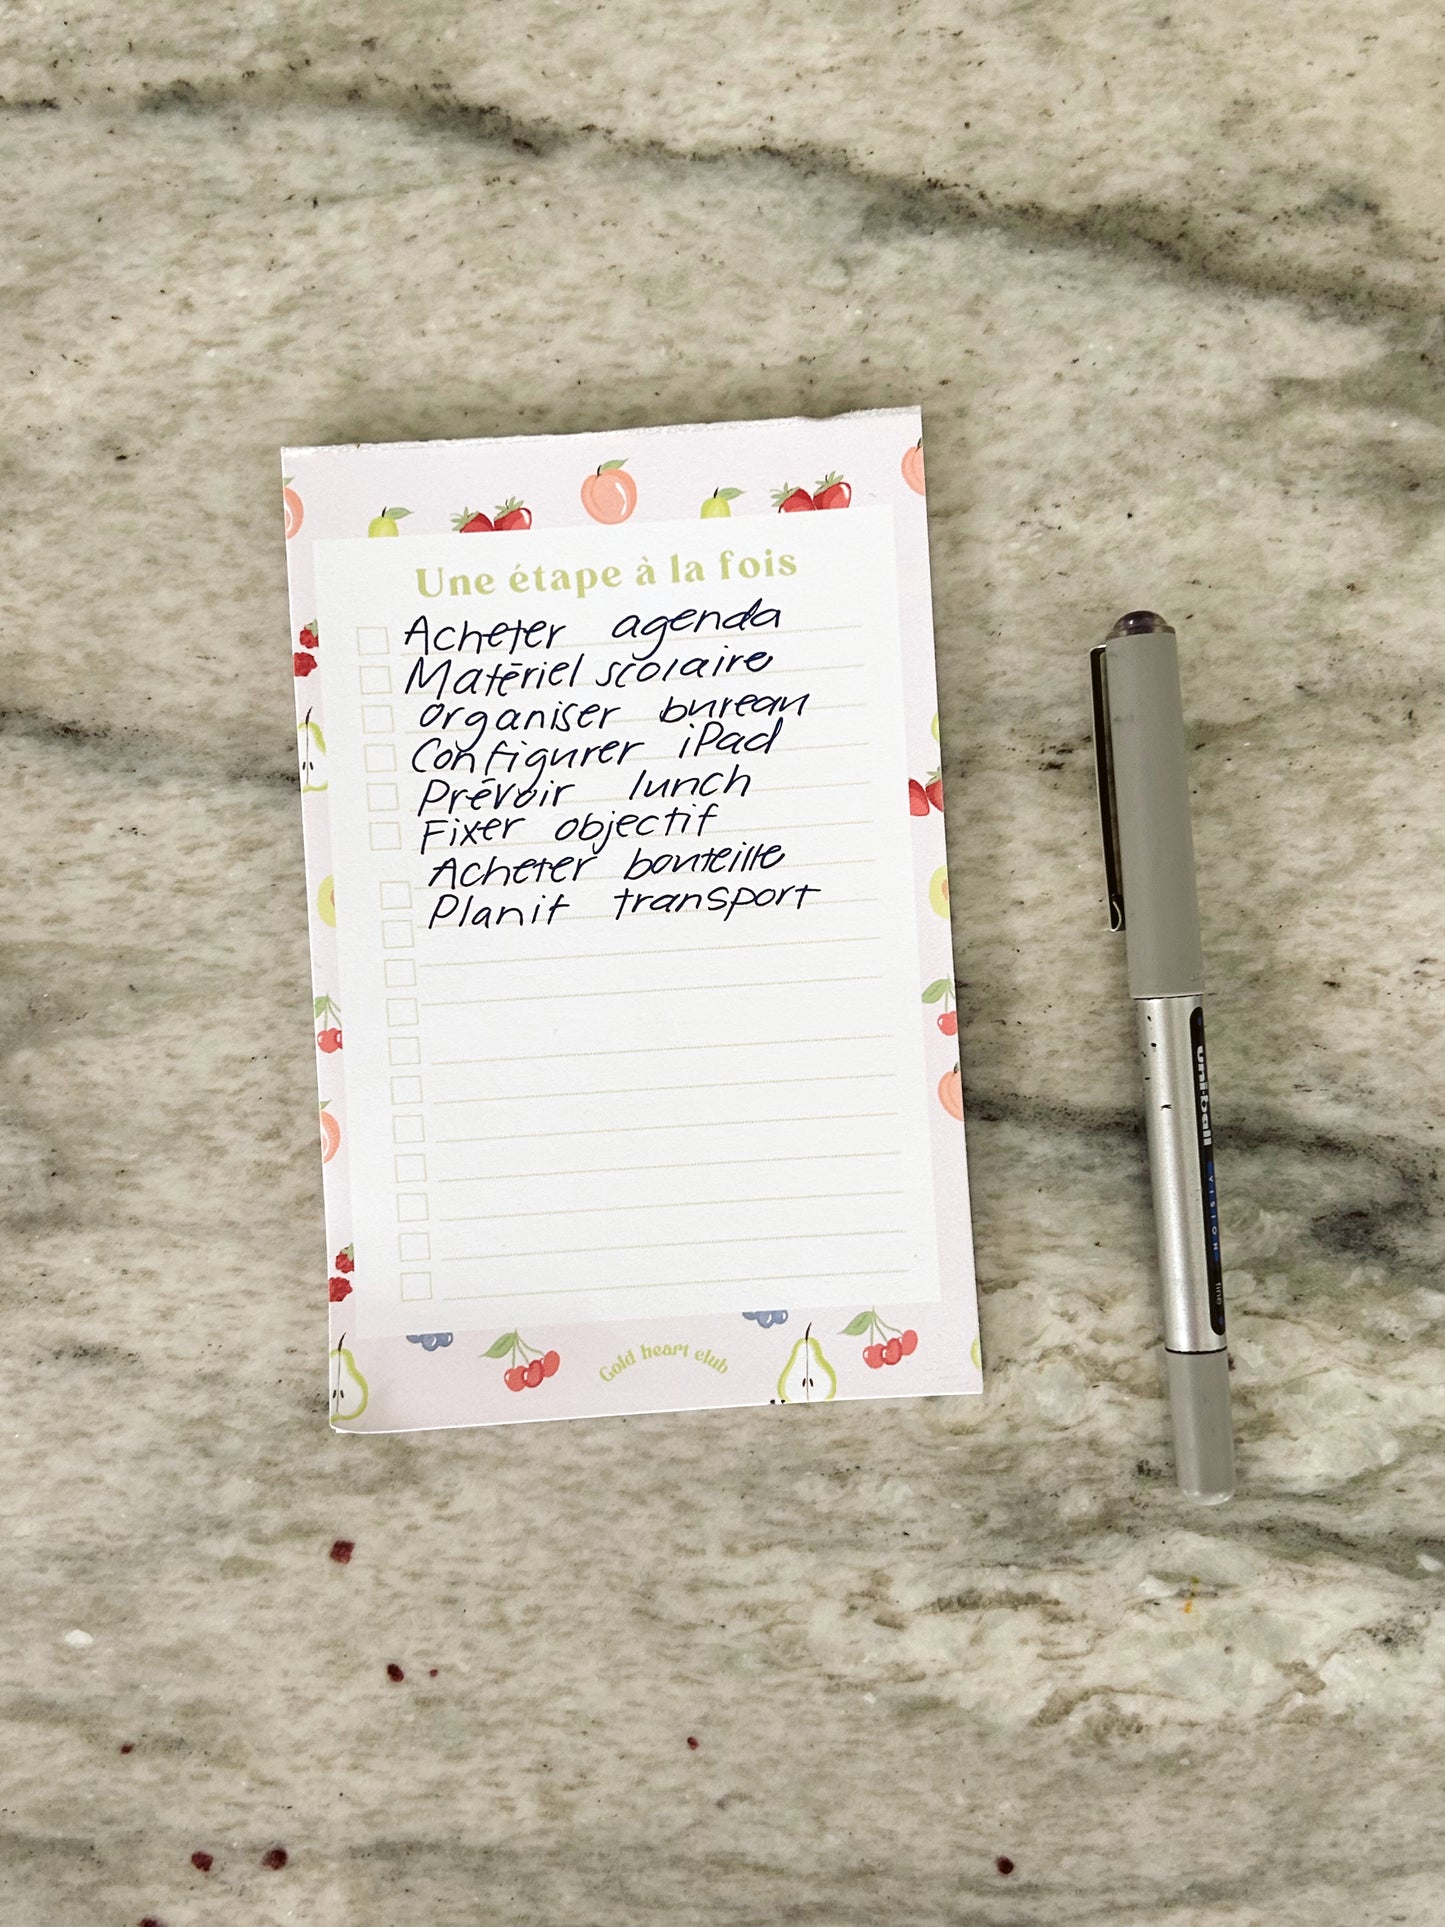 Une étape à la fois
Acheter agenda
Matériel scolaire
Organiser bureau
Configurer iPad
Prévoir lunch
Fixer objectif
Acheter bouteille
Planif transport
Gold heart club
uni-ball
VISION
fine